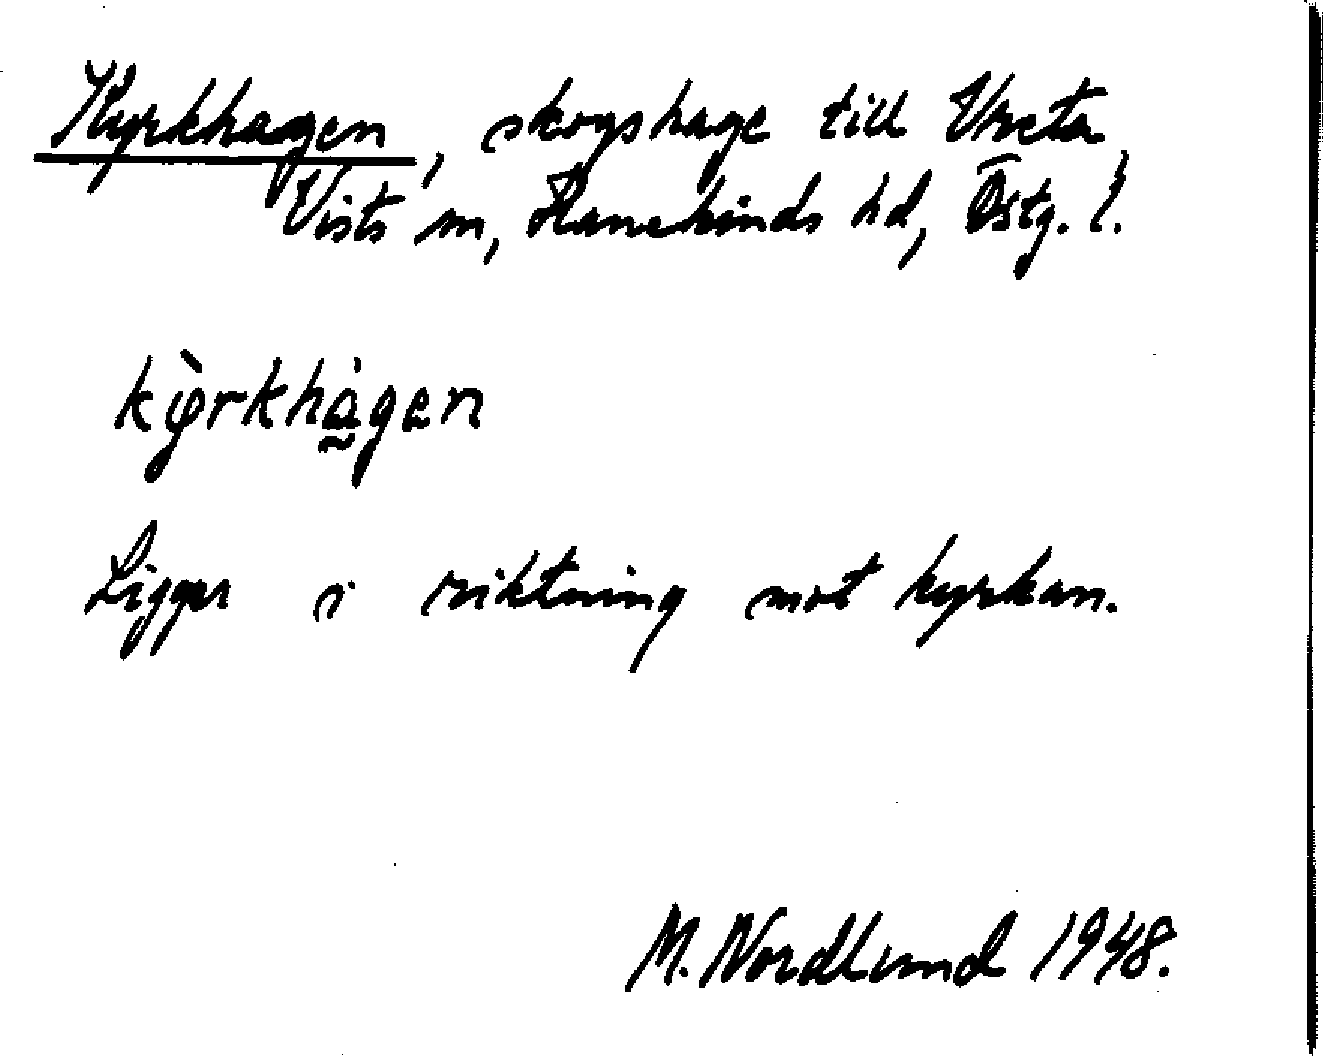 Kyrkhagen, skogshage till Vreta
Vists sn, Hanekinds hd, Östg. l.
kỳrkhàgen
Ligger i riktning mot kyrkan.
M. Nordlund 1948.